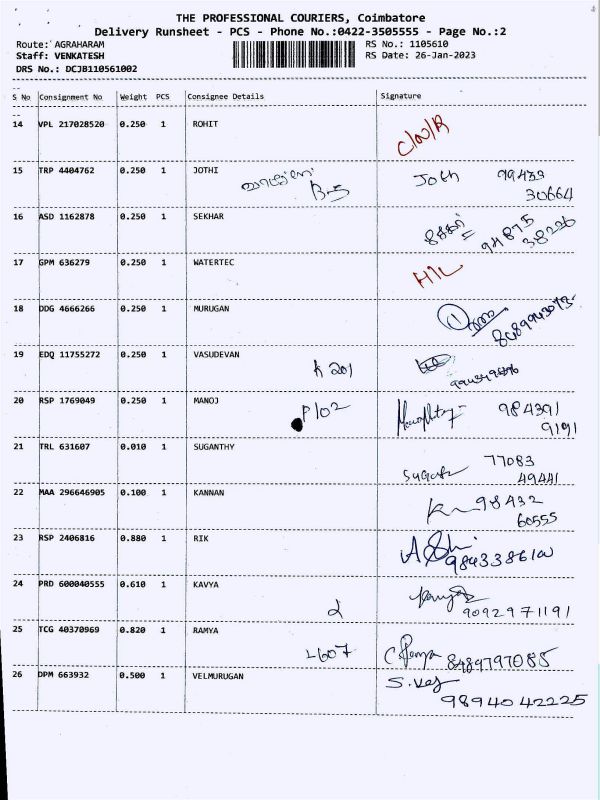 THE PROFESSIONAL COURIERS, Coimbatore
Delivery Runsheet - PCS - Phone No.:0422-3505555 - Page No.:2
Route: AGRAHARAM RS No.: 1105610
Staff: VENKATESH RS Date: 26-Jan-2023
DRS No.: DCJB110561002
S No Consignment No Weight PCS Consignee Details Signature
14 VPL 217028520 0.250 1 ROHIT
15 TRP 4404762 0.250 1 JOTHI B-5 Joth 99439
30664
16 ASD 1162878 0.250 1 SEKHAR சேகர் 94875
38226
17 GPM 636279 0.250 1 WATERTEC
18 DDG 4666266 0.250 1 MURUGAN
19 EDQ 11755272 0.250 1 VASUDEVAN K 201
20 RSP 1769049 0.250 1 MANOJ P102 984391
9191
21 TRL 631607 0.010 1 SUGANTHY 77083
49441
22 MAA 296646905 0.100 1 KANNAN 98432
60555
23 RSP 2406816 0.880 1 RIK
24 PRD 600040555 0.610 1 KAVYA 9092971191
25 TCG 40370969 0.820 1 RAMYA L607 C Ramya 8489797085
26 DPM 663932 0.500 1 VELMURUGAN S. Vel
9894042225